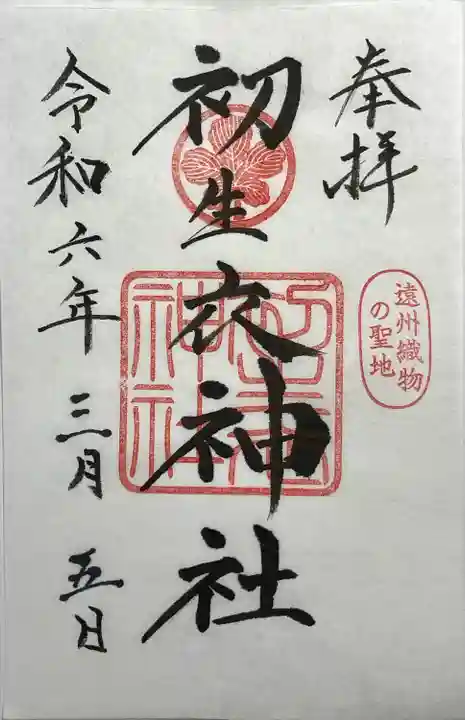 奉拝
遠州織物
の聖地
初生衣神社
令和六年 三月 五日